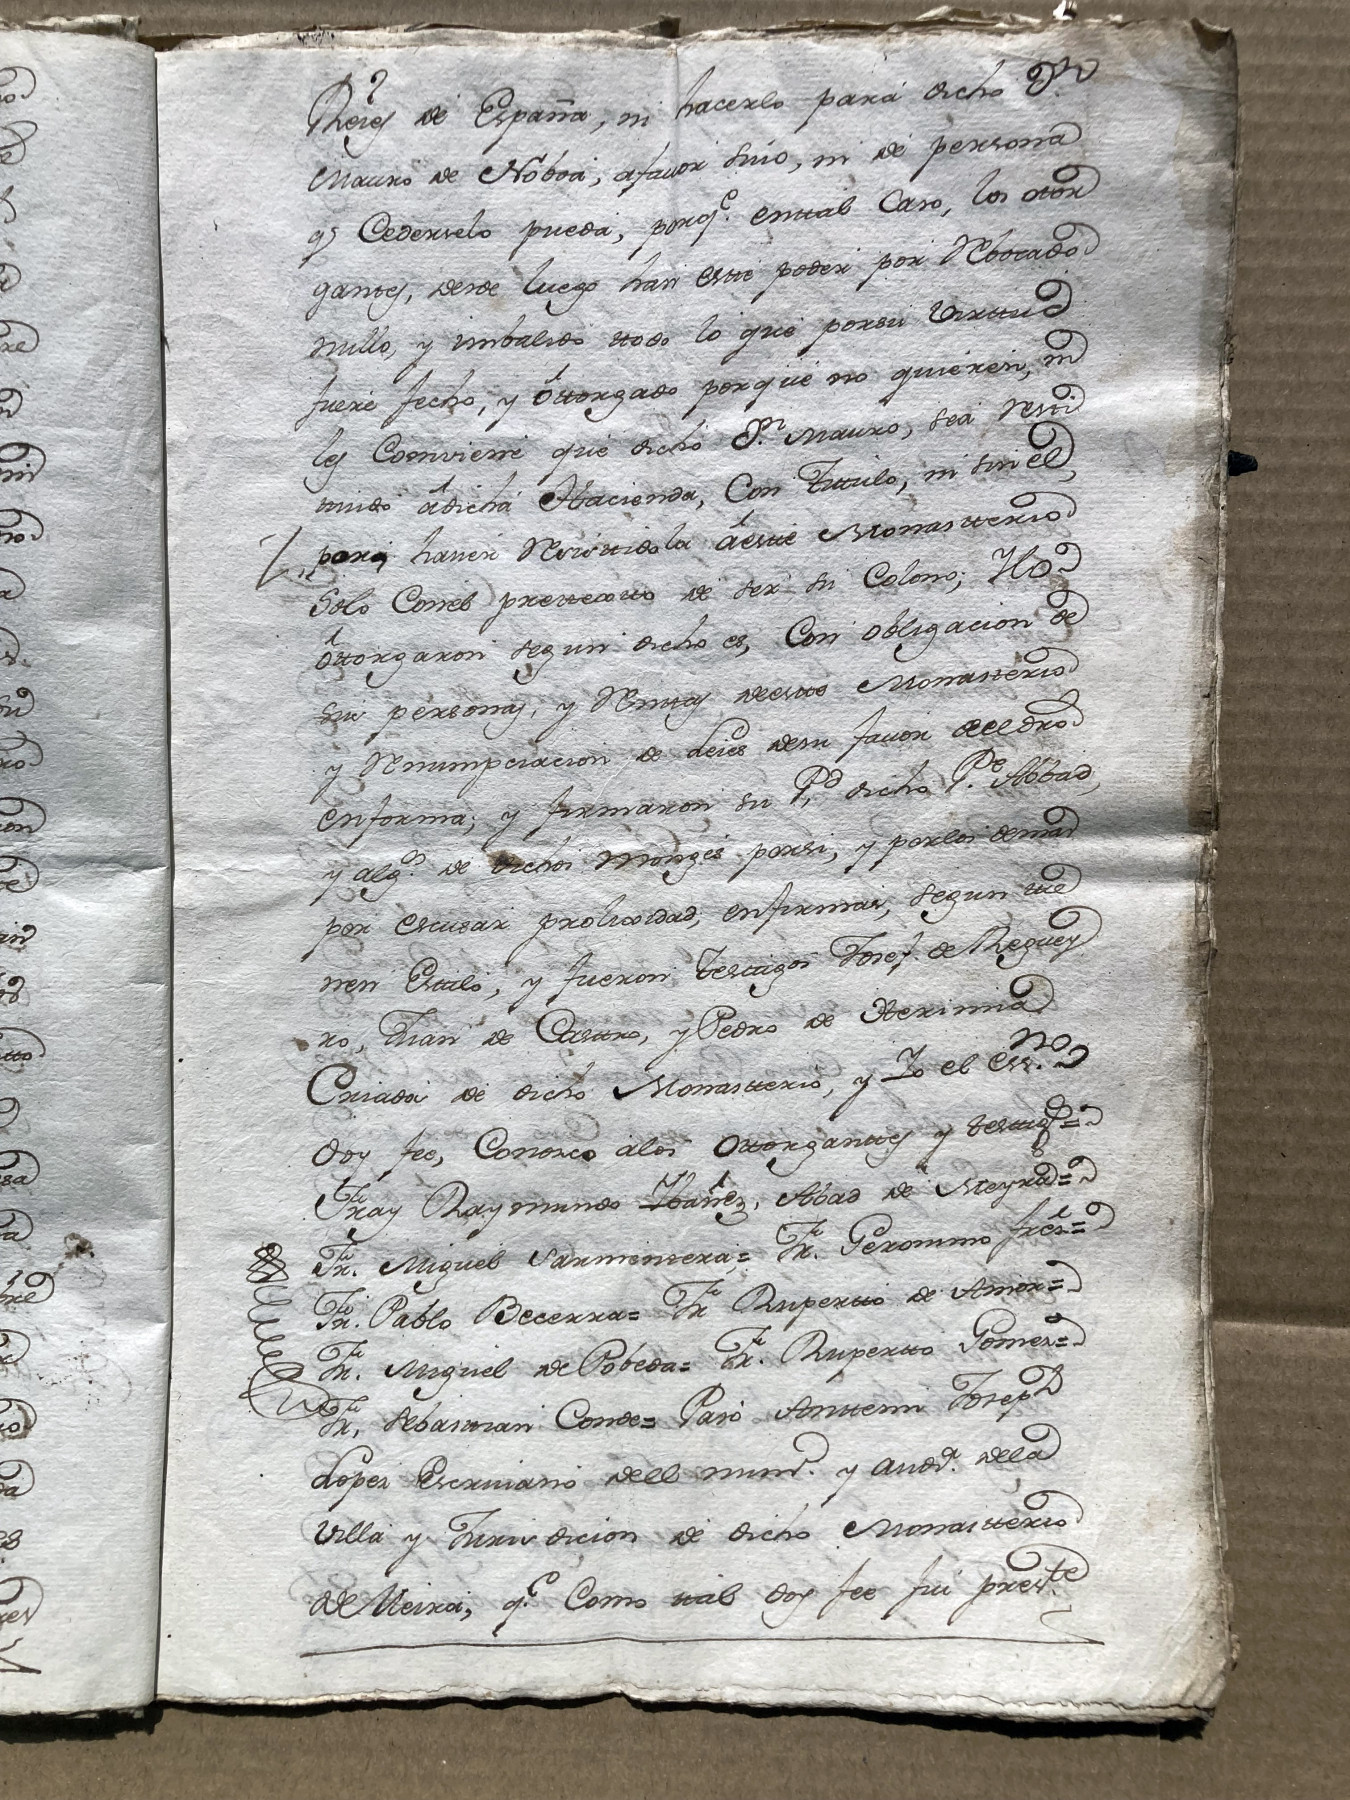 Reies de España, ni hacerlo para dicho Dn
Mauro de Noboa, afavor suio, ni de persona
qe Cederselo pueda, porqe. enttal Caso, los otor
gantes, desde luego han este poder por Rebocado
nullo, y imbalido ttodo lo que porsu Virttud
fuere fecho, y óttorgado porque no quieren, ni
les Comviene que dicho Dn. Mauro, sea resti
tuido ádicha Hacienda, Con Titulo, ni sin el,
para haver Resistidola áeste Monastterio
Solo Conel prettextto de ser su Colono; Y lo
óttorgaron segun dicho es, Con obligacion de
sus personas, y Rentas deeste Monastterio
y Renumpciacion de Leies desu favor de el dro
enforma; y firmaron su Pd. dicho Pe. Abbad,
y algs. de dichos Monges porsi, y porlos demas
por escusar prolixidad, enfirmas, segun tie
nen Estilo, y fueron testigos Josef. de Reguey
ro, Juan de Casttro, y Pedro de
Criados de dicho Monastterio, y Yo el essno.
doy fee, Conosco alos Ottorganttes y testigs=
Fray Raymundo Ybáñez, Abad de Meyra=
Fr. Miguel Sarmientera= Fr. Geronimo frés=
Fr. Pablo Becerra= Fr Rupertto de Amor=
Fr. Miguel de Pobeda= Fr. Rupertto Gomez=
Fr, Sebasttian Conde= Pasó Anttemi Joseph
Lopez Escrivano dell numo. y auda. dela
Villa y Jurisdicion de dicho Monastterio
de Meira, qe Como ttal doy fee fui preste